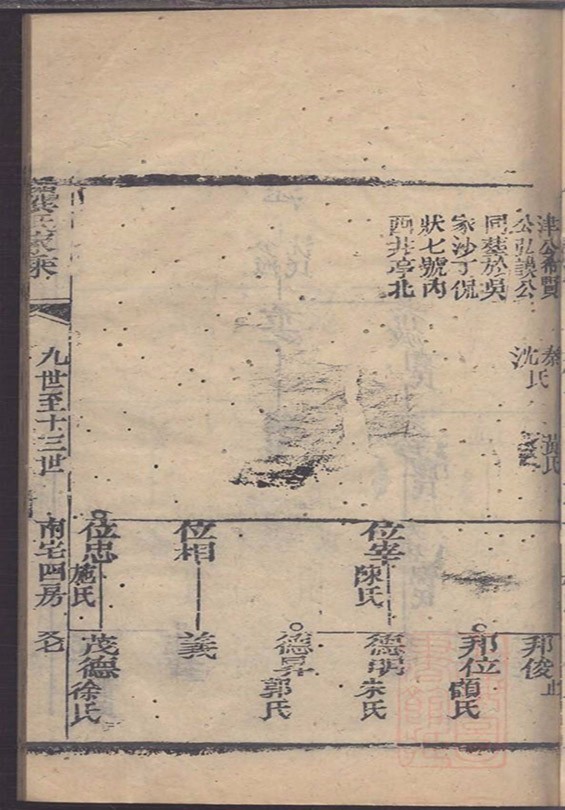 津公希賢
公弘謨公
同墓於吳
家沙丁侃
狀七號內
西井亭北
秦氏
沈氏
氏
位宰 陳氏
位相
位忠 施氏
邦俊 止
邦位 顧氏
德明 朱氏
德昇 郭氏
義
茂德 徐氏
九世至十三世
南宅四房